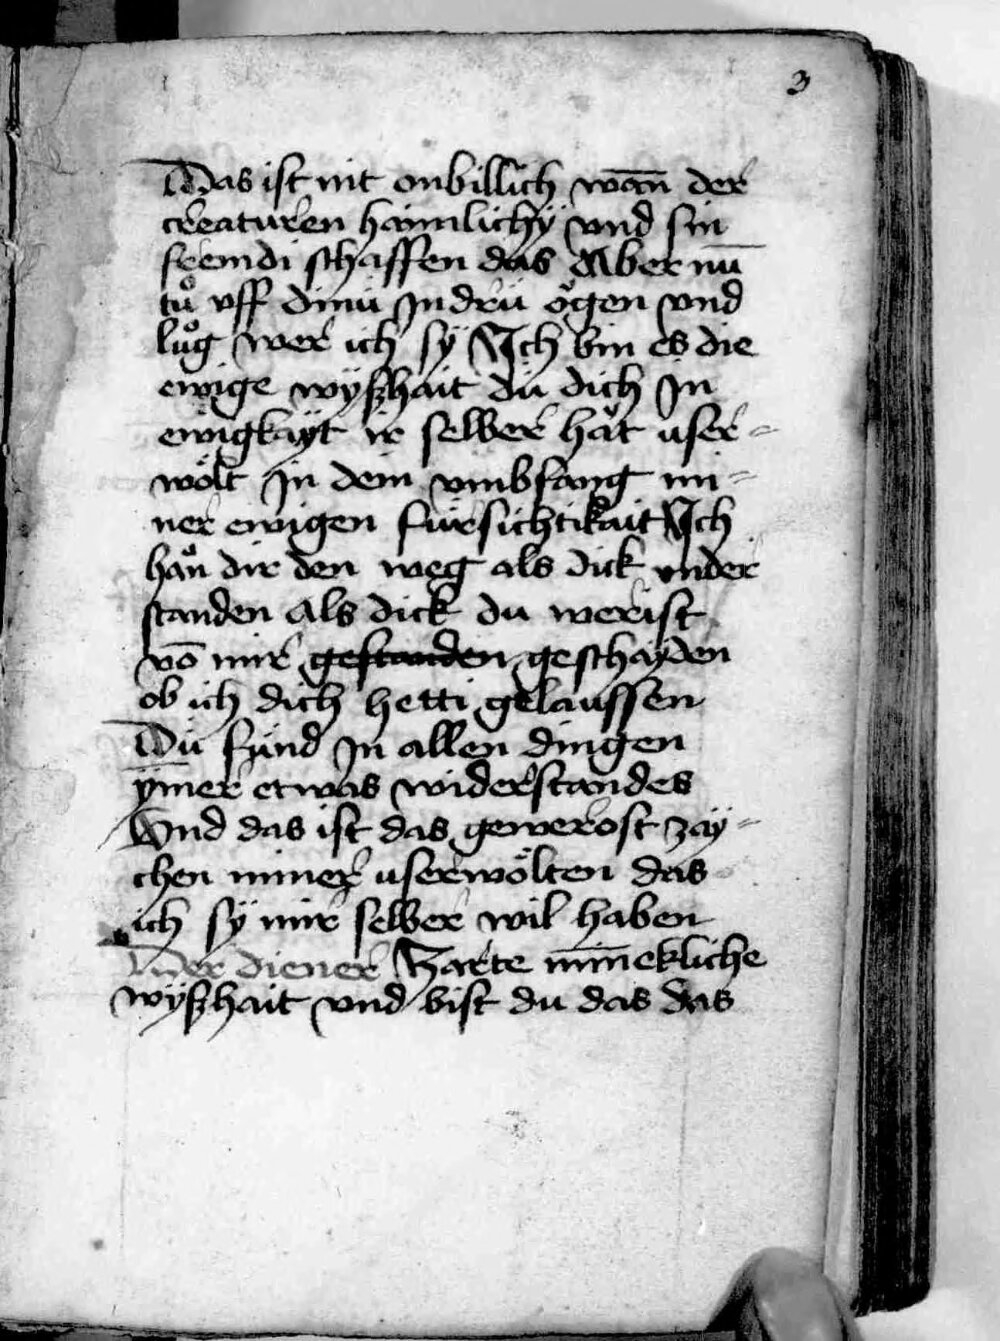 3
Das ist nit onbillich wañ der
creaturen haimlichÿ vnd sin
fremdi schaffen das Aber nū
tuͦ vff dinü Jndrü oͮgen vnd
luͦg wer ich sÿ Jch bin es die
ewige wÿßhait dü dich Jn
ewigkayt ir selber haͮt vser-
wölt Jn dem vmbfang mi-
ner ewigen fürsichtikait Jch
haͮn dir den weg als dick vnder
standen Als dick du werist
vō mir gestanden geschayden
ob ich dich hetti gelaussen
Du fünd Jn allen dingen
ÿmer etwas widerstandes
Vnd das ist das gewerost zaÿ-
chen miner vserwölten das
ich sÿ mir selber wil haben
Der diener Zarte miñekliche
wÿßhait vnd bist du das das